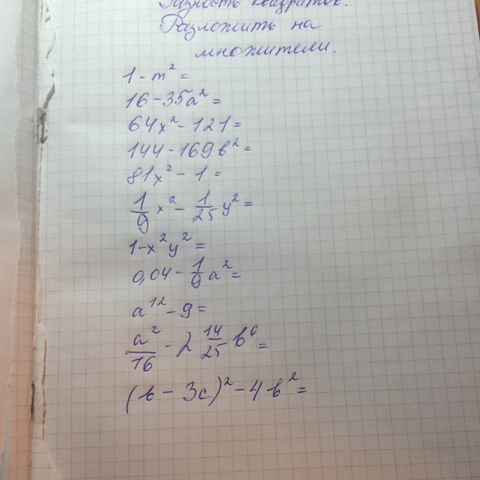 Разность квадратов.
Разложить на
множители.
1 - m² =
16 - 35a² =
64x² - 121 =
144 - 169b² =
81x² - 1 =
1/9 x² - 1/25 y² =
1 - x²y² =
0,04 - 1/9 a² =
a¹² - 9 =
a²/16 - 2 14/25 b⁶ =
(b - 3c)² - 4b² =